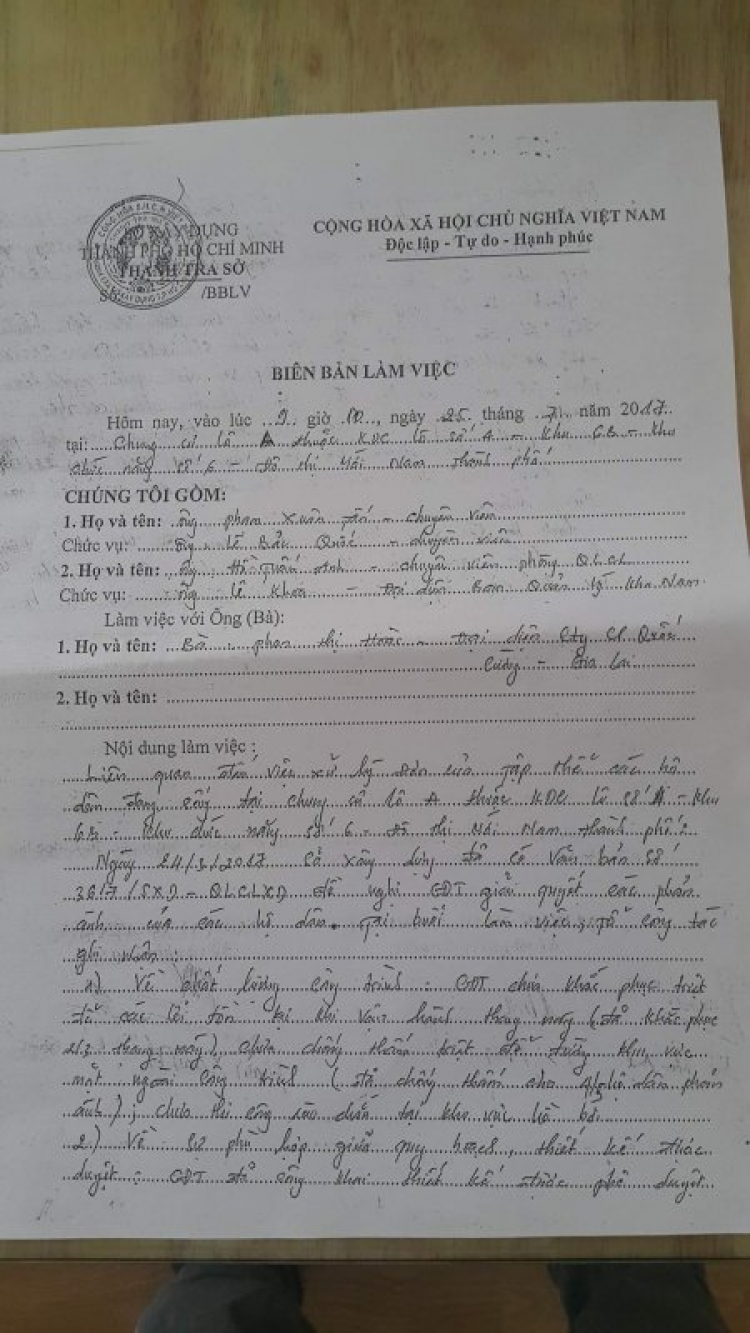 SỞ XÂY DỰNG
THÀNH PHỐ HỒ CHÍ MINH
THANH TRA SỞ
Số /BBLV
CỘNG HÒA XÃ HỘI CHỦ NGHĨA VIỆT NAM
Độc lập - Tự do - Hạnh phúc
BIÊN BẢN LÀM VIỆC
Hôm nay, vào lúc 9 giờ 10, ngày 25 tháng 7 năm 2017
tại: Chung cư lô A thuộc KDC lô số A - Khu 6B - Khu
chức năng số 6 - Đô thị Mới Nam thành phố
CHÚNG TÔI GỒM:
1. Họ và tên: Ông Phan Xuân - chuyên viên
Chức vụ: Ông Lê Bảo Quốc - chuyên viên
2. Họ và tên: Ông Hồ Tuấn Anh - chuyên viên phòng QLCL
Chức vụ: Ông Lê Khoa - Đại diện Ban Quản lý Khu Nam
Làm việc với Ông (Bà):
1. Họ và tên: Bà Phan thị - Đại diện Cty CP Quốc
Cường - Gia Lai
2. Họ và tên:
Nội dung làm việc :
Liên quan đến việc xử lý đơn của tập thể các hộ
dân đang sống tại chung cư lô A thuộc KDC lô số A - Khu
6B - Khu chức năng số 6 - Đô thị Mới Nam thành phố
Ngày 24/3/2017 Sở xây dựng đã có văn bản số
3617/SXD - QLCLXD đề nghị CĐT giải quyết các phản
ánh của các hộ dân. Tại buổi làm việc, tổ công tác
ghi nhận:
1) Về chất lượng công trình: CĐT chưa khắc phục triệt
để các lỗi tồn tại khi vận hành thang máy (đã khắc phục
2/3 thang máy), chưa chống thấm triệt để tường khu vực
mặt ngoài công trình (đã chống thấm cho hộ dân phản
ánh), chưa thi công tại khu vực hồ bơi
2.) Về sự phù hợp giữa quy hoạch, thiết kế được
duyệt: CĐT đã công khai thiết kế được phê duyệt